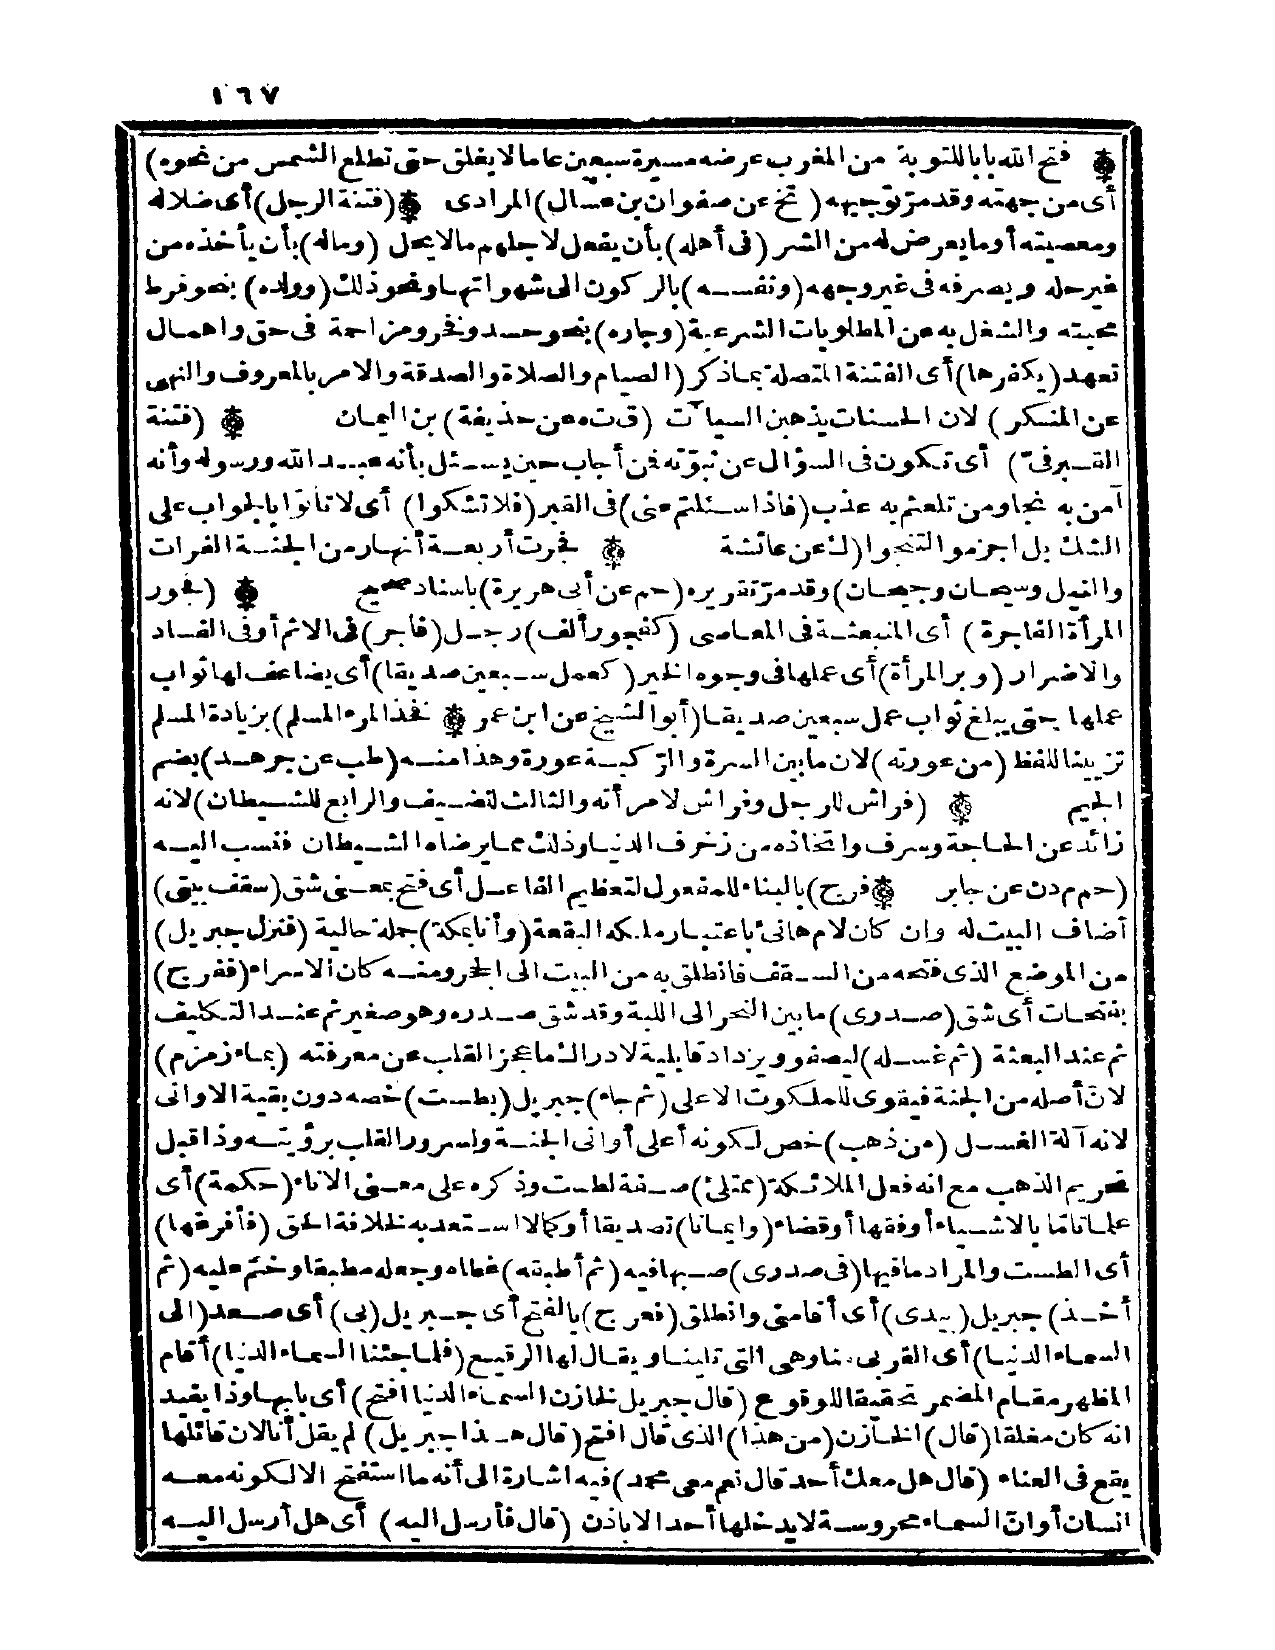 ١٦٧
فتح الله بابا للتوبة من المغرب عرضه مسيرة سبعين عاما لا يغلق حتى تطلع الشمس من نحوه)
أى من جهته وقد مرّ توجيهه (تخ عن صفوان بن عسال) المرادى (فتنة الرجل) أى ضلاله
ومعصيته أو ما يعرض له من الشر (فى أهله) بأن يفعل لاجلهم مالا يحل (وماله) بأن يأخذه من
غير حله ويصرفه فى غير وجهه (ونفسه) بالركون الى شهواتها ونحو ذلك (وولده) بنحو فرط
محبته والشغل به عن المطلوبات الشرعية (وجاره) بنحو حسد وفخر ومزاحمة فى حق واهمال
تعهد (يكفرها) أى الفتنة المتصلة بماذكر (الصيام والصلاة والصدقة والامر بالمعروف والنهى
عن المنكر) لان الحسنات يذهبن السيآت (ق ت ه عن حذيفة) بن اليمان (فتنة
القبر فىّ) أى تكون فى السؤال عن نبوّته فمن أجاب حين يسئل بأنه عبد الله ورسوله وأنه
آمن به نجا ومن تلعثم به عذب (فاذا سئلتم عنى) فى القبر (فلا تشكوا) أى لا تأتوا بالجواب على
الشك بل اجزموا لتنجوا (ك عن عائشة فجرت أربعة أنهار من الجنة الفرات
والنيل وسيحان وجيحان) وقد مرّ تقريره (حم عن أبى هريرة) باسناد صحيح (فجور
المرأة الفاجرة) أى المنبعثة فى المعاصى (كفجور ألف) رجل (فاجر) فى الاثم أو فى الفساد
والاضرار (وبر المرأة) أى عملها فى وجوه الخير (كعمل سبعين صديقا) أى يضاعف لها ثواب
عملها حتى يبلغ ثواب عمل سبعين صديقا (أبو الشيخ عن ابن عمر فخذ المرء المسلم) بزيادة المسلم
تزيينا للفظ (من عورته) لان ما بين السرة والركبة عورة وهذا منه (طب عن جرهد) بضم
الجيم (فراش للرجل وفراش لامرأته والثالث للضيف والرابع للشيطان) لانه
زائد عن الحاجة وسرف واتخاذه من زخرف الدنيا وذلك مما يرضاه الشيطان فنسب اليه
(حم م د ن عن جابر فرج) بالبناء للمفعول لتعظيم الفاعل أى فتح بمعنى شق (سقف بيتى)
أضاف البيت له وان كان لام هانئ باعتبار ملكه البقعة (وأنا بمكة) جملة حالية (فنزل جبريل)
من الموضع الذى فتحه من السقف فانطلق به من البيت الى الحجر ومنه كان الاسراء (ففرج)
بفتحات أى شق (صدرى) ما بين النحر الى اللبة وقد شق صدره وهو صغير ثم عند التكليف
ثم عند البعثة (ثم غسله) ليصفو ويزداد قابلية لادراك ما عجز القلب عن معرفته (بماء زمزم)
لانّ أصله من الجنة فيقوى للملكوت الاعلى (ثم جاء) جبريل (بطست) خصه دون بقية الاوانى
لانه آلة الغسل (من ذهب) خص لكونه أعلى أوانى الجنة ولسرور القلب برؤيته وذا قبل
تحريم الذهب مع انه فعل الملائكة (ممتلئ) صفة لطست وذكره على معنى الاناء (حكمة) أى
علما تامّا بالاشياء أو فقها أو قضاء (وايمانا) تصديقا أو كمالا استعد به لخلافة الحق (فأفرغها)
أى الطست والمراد ما فيها (فى صدرى) صبها فيه (ثم أطبقه) غطاه وجعله مطبقا وختم عليه (ثم
أخذ) جبريل (بيدى) أى أقامنى وانطلق (فعرج) بالفتح أى جبريل (بى) أى صعد (الى
السماء الدنيا) أى القربى منا وهى التى تلينا ويقال لها الرقيع (فلما جئنا السماء الدنيا) أقام
المظهر مقام المضمر تحقيقا للوقوع (قال جبريل لخازن السماء الدنيا افتح) أى بابها وذا يفيد
انه كان مغلقا (قال) الخازن (من هذا) الذى قال افتح (قال هذا جبريل) لم يقل أنا لان قائلها
يقع فى العناء (قال هل معك أحد قال نعم معى محمد) فيه اشارة الى أنه ما استفتح الا لكونه معه
انسان أو انّ السماء محروسة لا يدخلها أحد الا باذن (قال فأرسل اليه) أى هل أرسل اليه